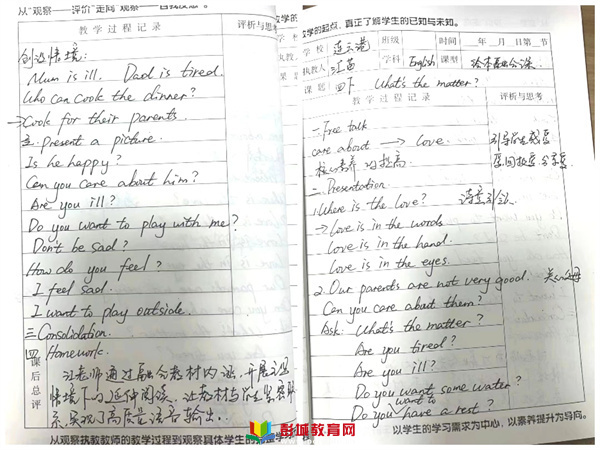 从“观察——评价”走向“观察——自我反思”。
教学过程记录
评析与思考
创设情境:
Mum is ill. Dad is tired.
Who can cook the dinner?
→ Cook for their parents.
3. Present a picture.
Is he happy?
Can you care about him?
Are you ill?
Do you want to play with me?
Don't be sad?
How do you feel?
I feel sad.
I want to play outside.
三 Consolidation.
四 Homework.
课后总评
老师通过融合教材内涵,开展主题
情境下的延伸阅读,让教材与学生紧密联
系,实现了高质量语言输出..
从观察执教教师的教学过程到观察具体学生的
教学的起点,真正了解学生的已知与未知。
学校
连云港
班级
时间
年 月 日第 节
执教人
江苗
学科
English
课型
绘本融合课
课题
四下 What's the matter?
教学过程记录
评析与思考
一. Free talk
care about → love.
引导学生感恩
核心素养的提高.
二. Presentation
1. Where is the love?
诗意引入
→ Love is in the words
Love is in the hand.
Love is in the eyes.
2. Our parents are not very good.
关心父母
Can you care about them?
Ask: What's the matter?
Are you tired?
Are you ill?
Do you want some water?
Do you want to have a rest?
以学生的学习需求为中心,以素养提升为导向。
彭城教育网